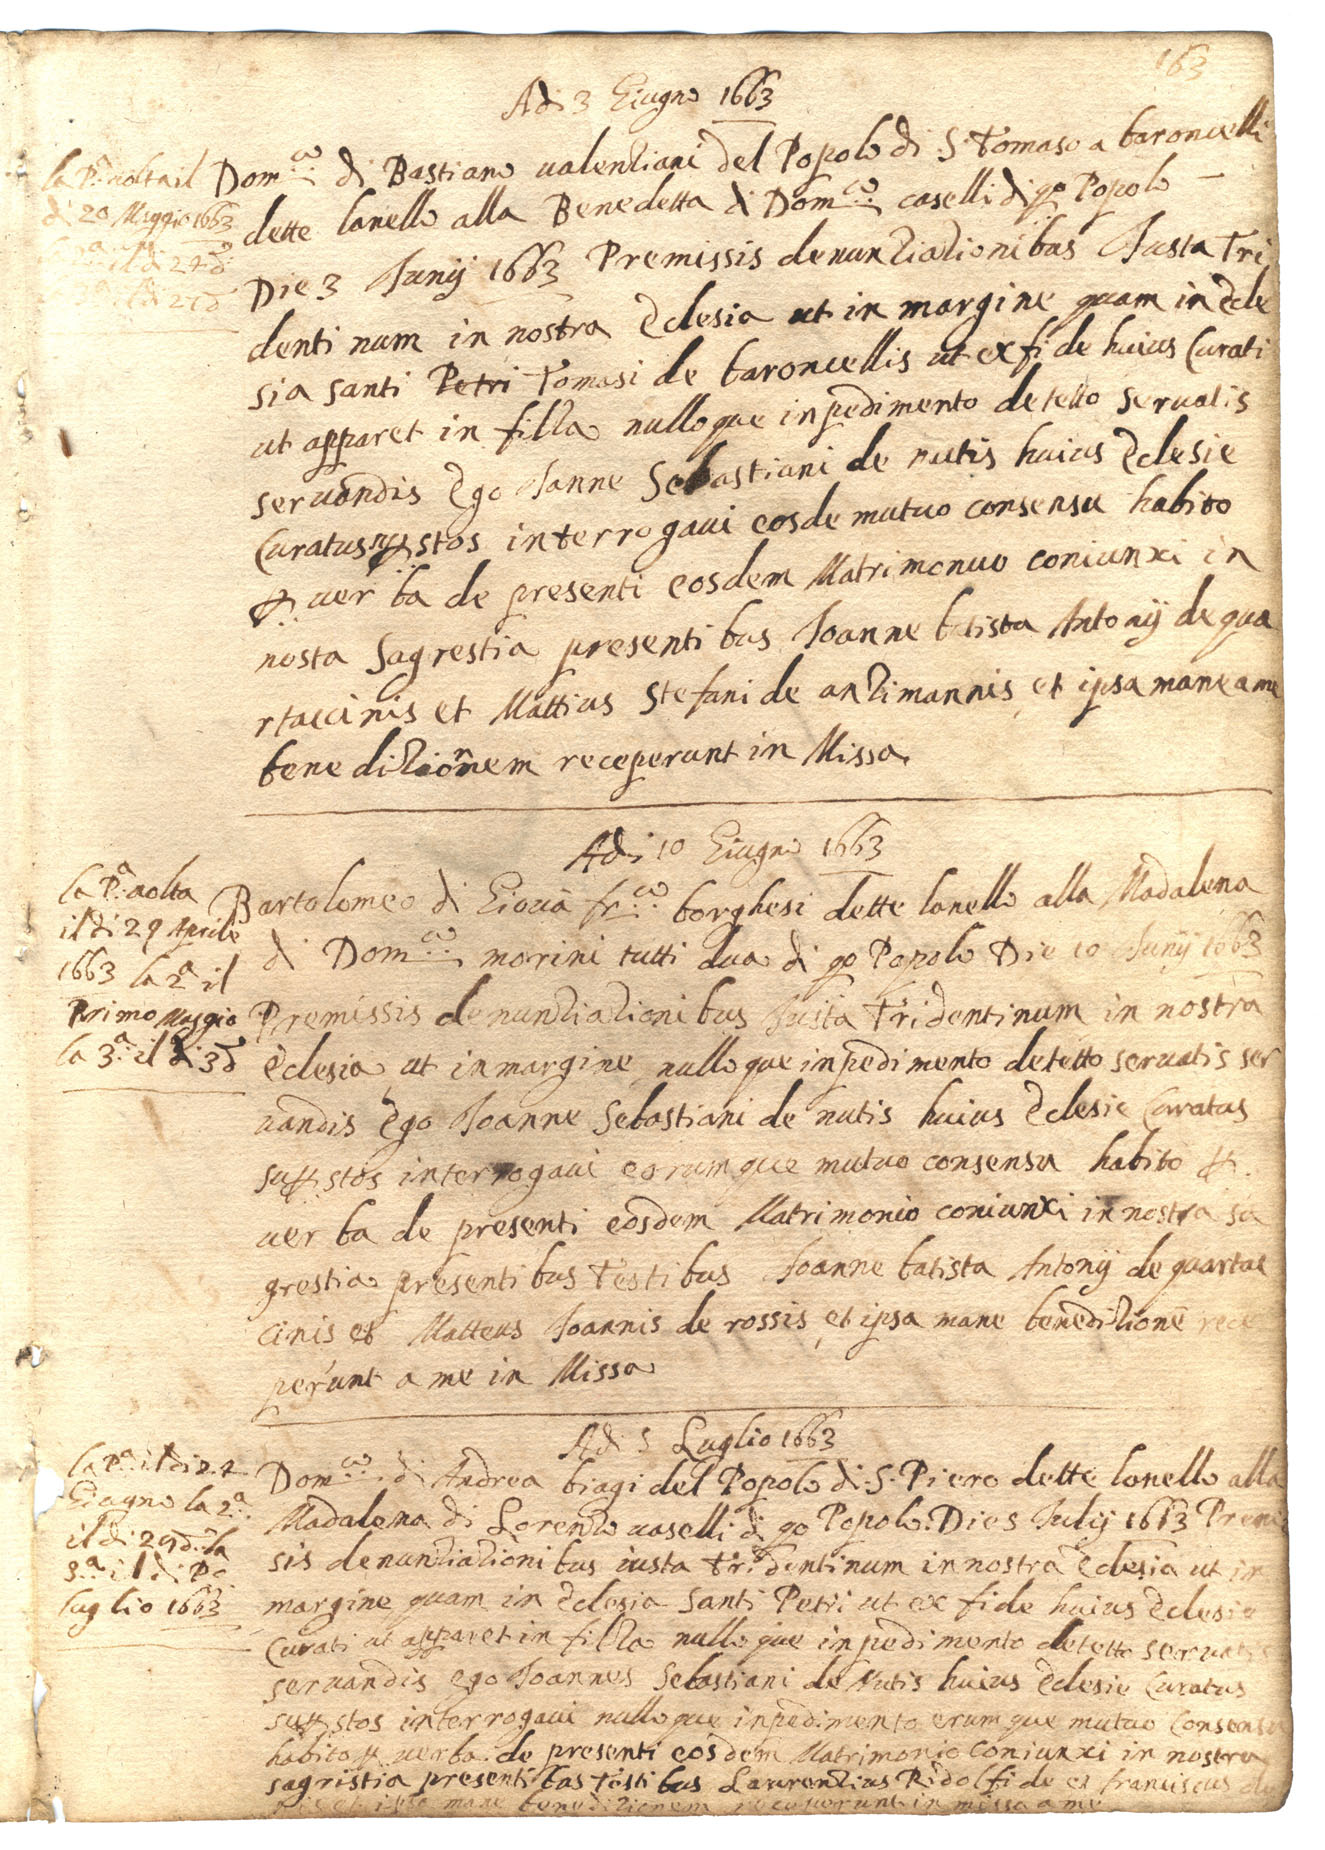 163
Adi 3 Giugno 1663
la Pa uolta il
di 20 Maggio 1663
il di 24 d
Domco di Bastiano ualenziani del Popolo di S. Tomaso a baroncelli
dette lanello alla Benedetta di Domco caselli di qo Popolo
Die 3 Junij 1663 Premissis denunziazionibus Justa Tri
denti num in nostra Eclesia ut in margine quam in Ecle
sia santi Petri Tomasi de baroncellis ut ex fide huius Curati
ut apparet in filza nulloque inpedimento detetto seruatis
seruandis Ego Janne Sebastiani de nutis huius Eclesie
Curatus suppstos interrogaui eosde mutuo consensu habito
p. uerba de presenti eosdem Matrimonuo coniunxi in
nosta Sagrestia presentibus Joanne batista Antonij de qua
rtaccinis et Mattius Stefani de anzimannis et ipsa mane a me
benedizionnem receperunt in Missa.
Adi 10 Giugno 1663
la Pa uolta
il di 29 Aprile
1663 la 2a il
Primo Maggio
la 3a il di 3 d
Bartolomeo di Gioua frco borghesi dette lanello alla Madalena
di Domco morini tutti dua di qo Popolo Die 10 Junij 1663
Premissis denunziazionibus Justa Tridentinum in nostra
Eclesia ut in margine nulloque inpedimento detetto seruatis ser
uandis Ego Joanne Sebastiani de nutis huius Eclesie Curatus
suppstos interrogaui eorumque mutuo consensu habito p.
uerba de presenti eosdem Matrimonio coniunxi in nostra sa
grestia presentibus testibus Joanne batista Antonij de quartac
cinis et Matteus Joannis de rossis et ipsa mane benedizione rece
perunt a me in Missa
Adi 5 Luglio 1663
la Pa il di 24
Giugno la 2a
il di 29 d la
3a il di Po
luglio 1663
Domco di Andrea biagi del Popolo di S. Piero dette lanello alla
Madalena di Lorenzo uaselli di qo Popolo. Die 5 Julij 1663 Premis
sis denunziazionibus iusta tridentinum in nostra Eclesia ut in
margine quam in Eclesia Santi Petri ut ex fide huius Eclesie
Curati ut apparet in filza nulloque inpedimento detetto seruatis
seruandis ego Joannes Sebastiani de Nutis huius Eclesie Curatus
suppstos interrogaui nulloque inpedimento erumque mutuo Consensu
habito p. uerba de presenti eosdem Matrimonio coniunxi in nostra
sagristia presentibus testibus Laurenzius Ridolfi de et franciscus
et ipsa mane benedizionem receperunt in missa a me